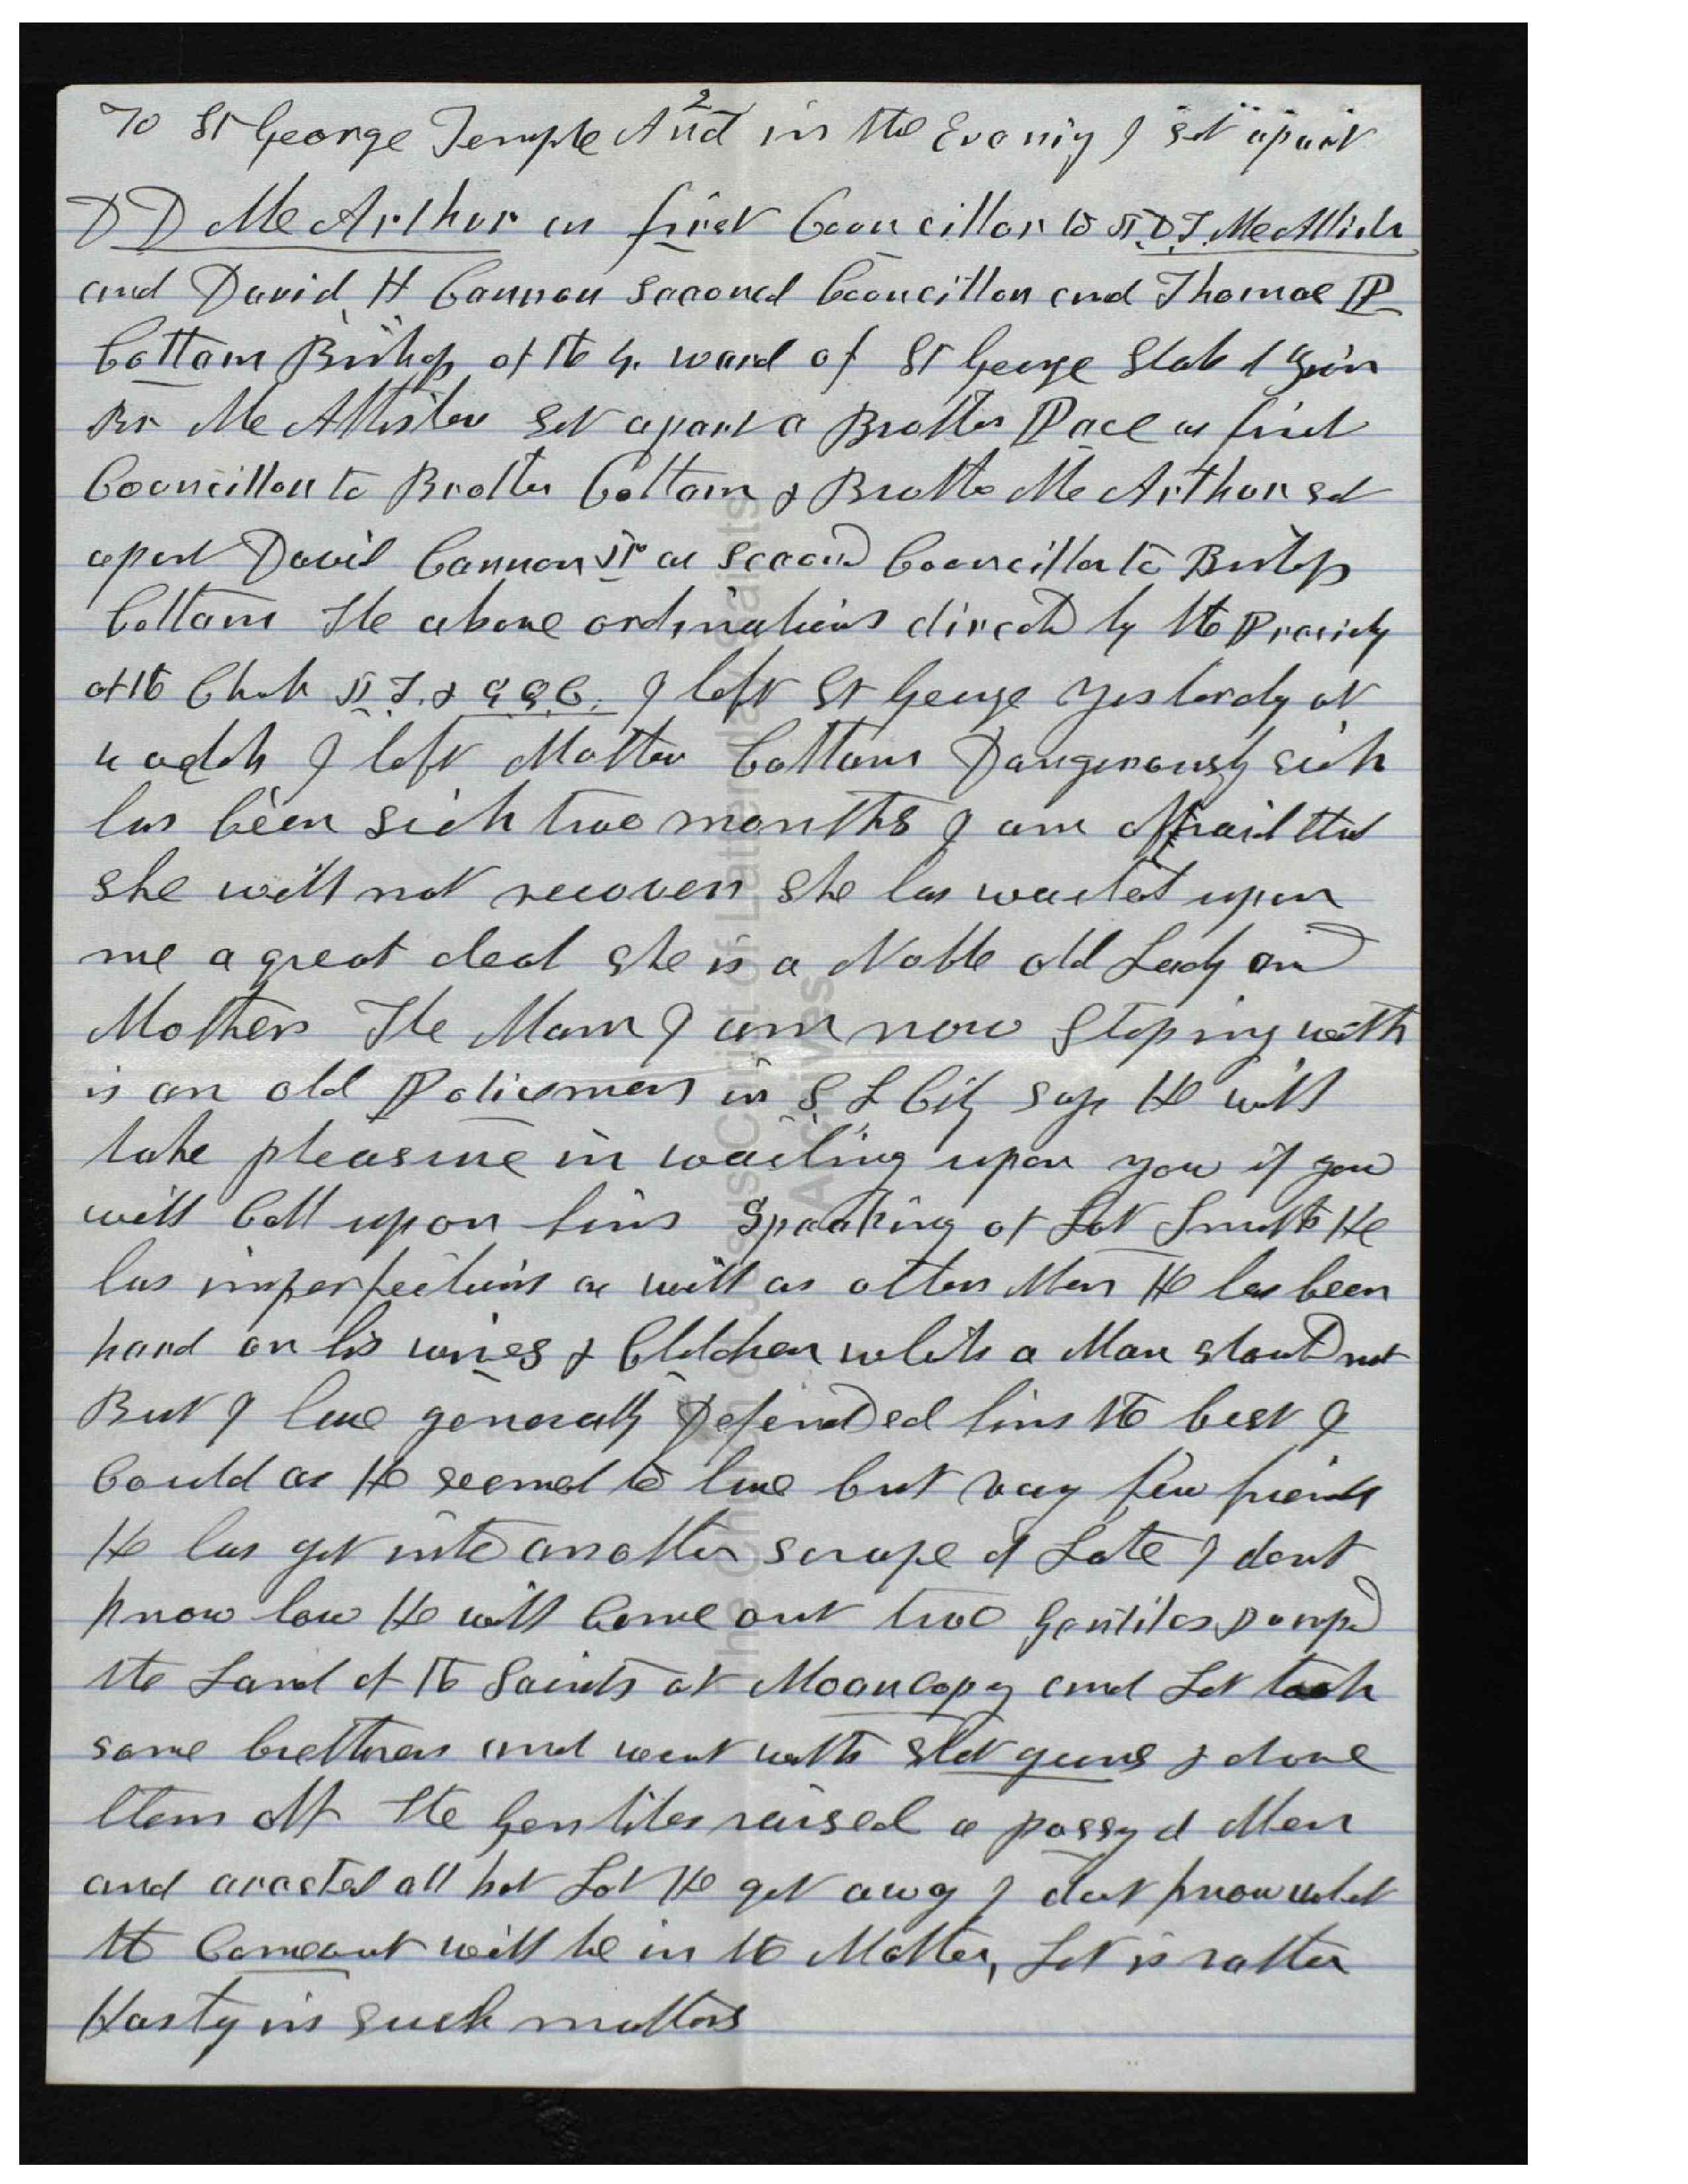 2
To St George Temple And in the Evening I set apart
D D McArthur as first Councillor to J. D. T. McAllister
and David H Cannon Second Councillor and Thomas P
Cottam Bishop of the 4. ward of St George Stake
Br McAllister set apart a Brother Pace as first
Councillor to Brother Cottam & Brother McArthur set
apart David Cannon Jr as Second Councillor to Bishop
Cottam The above ordinations directed by the Presidency
of the Church J. T. & G Q C. I left St George Yesterday at
oclok I left Mother Cottam Dangerously sick
has been sick two months I am Afraid that
she will not recover she has waited upon
me a great deal she is a Noble old Lady and
Mother The Man I am now Stoping with
is an old Policeman in S L City says He will
take pleasure in waiting upon you if you
will Call upon him Speaking of Lot Smith He
has imperfections as well as other Men He has been
hard on his wives & Children which a Man should not
But I have generally Defended him the best I
Could as He seemed to have but vary few friends
He has got into another scrape of Late I dont
know how He will Come out two Gentiles Jumpd
the Land of the Saints at Moancopy and Lot took
some brethren and went with shot guns & drove
them off The Gentiles raised a possy of Men
and arested all but Lot He got away I dont know what
the Comeout will be in the Matter, Lot is rather
Hasty in such matters
The Church of Jesus Christ of Latter-day Saints
Archives